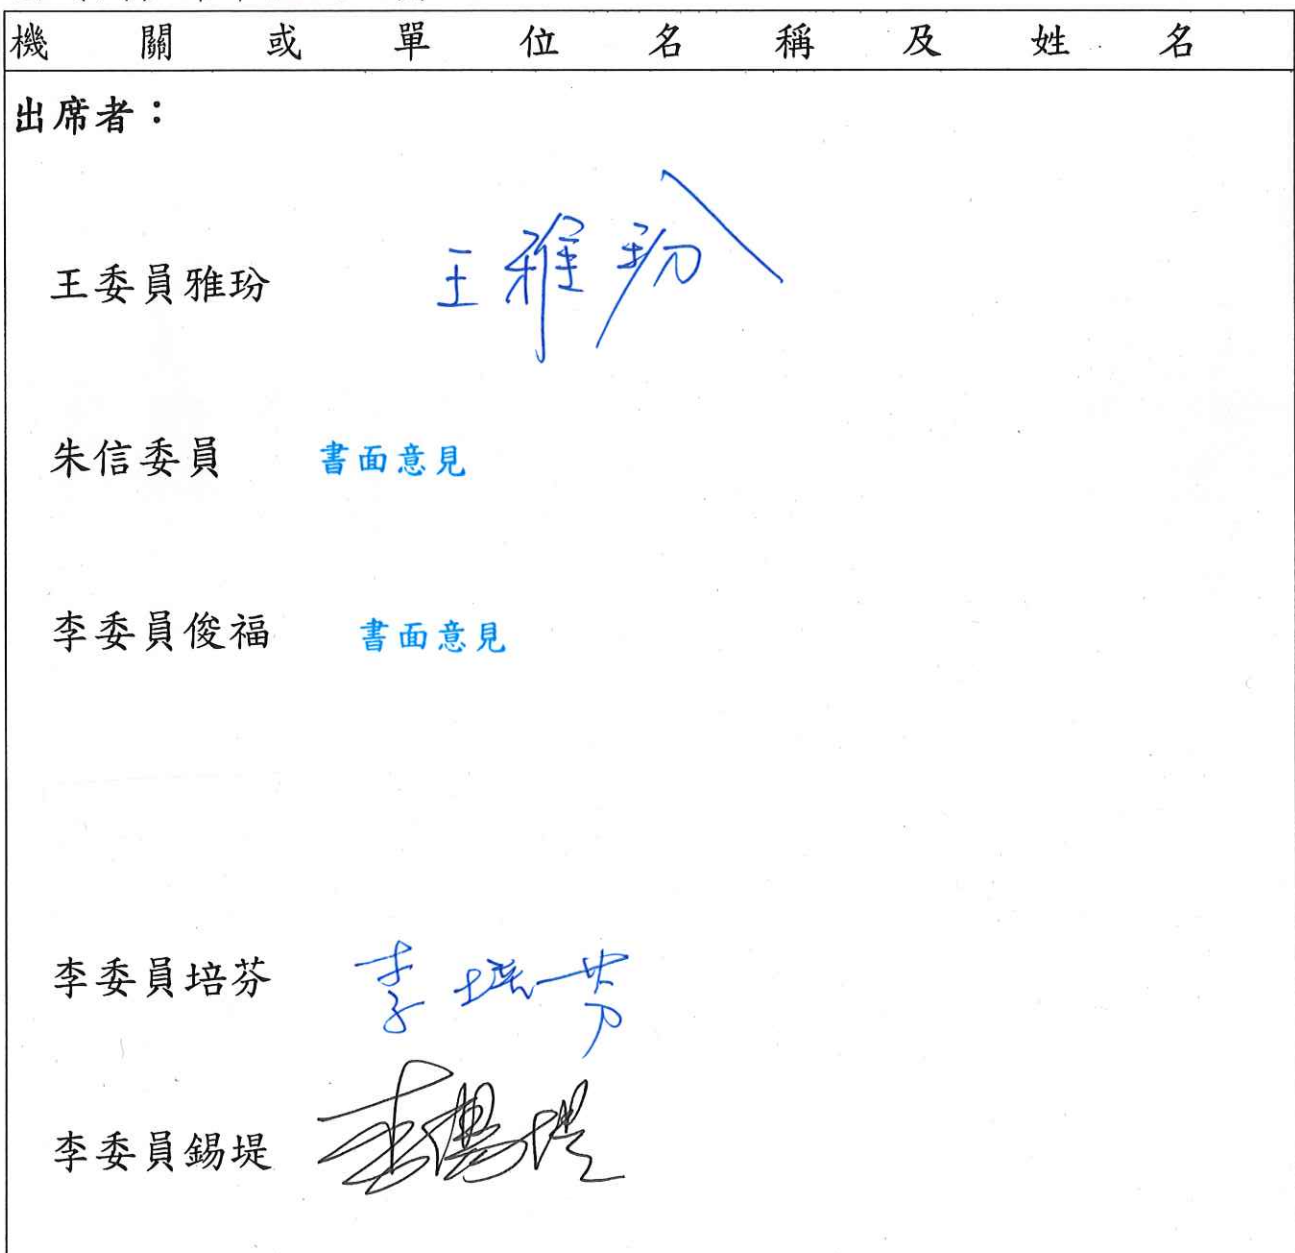 機關或單位名稱及姓名
出席者：
王委員雅玢 王雅玢
朱信委員 書面意見
李委員俊福 書面意見
李委員培芬 李培芬
李委員錫堤 李錫堤